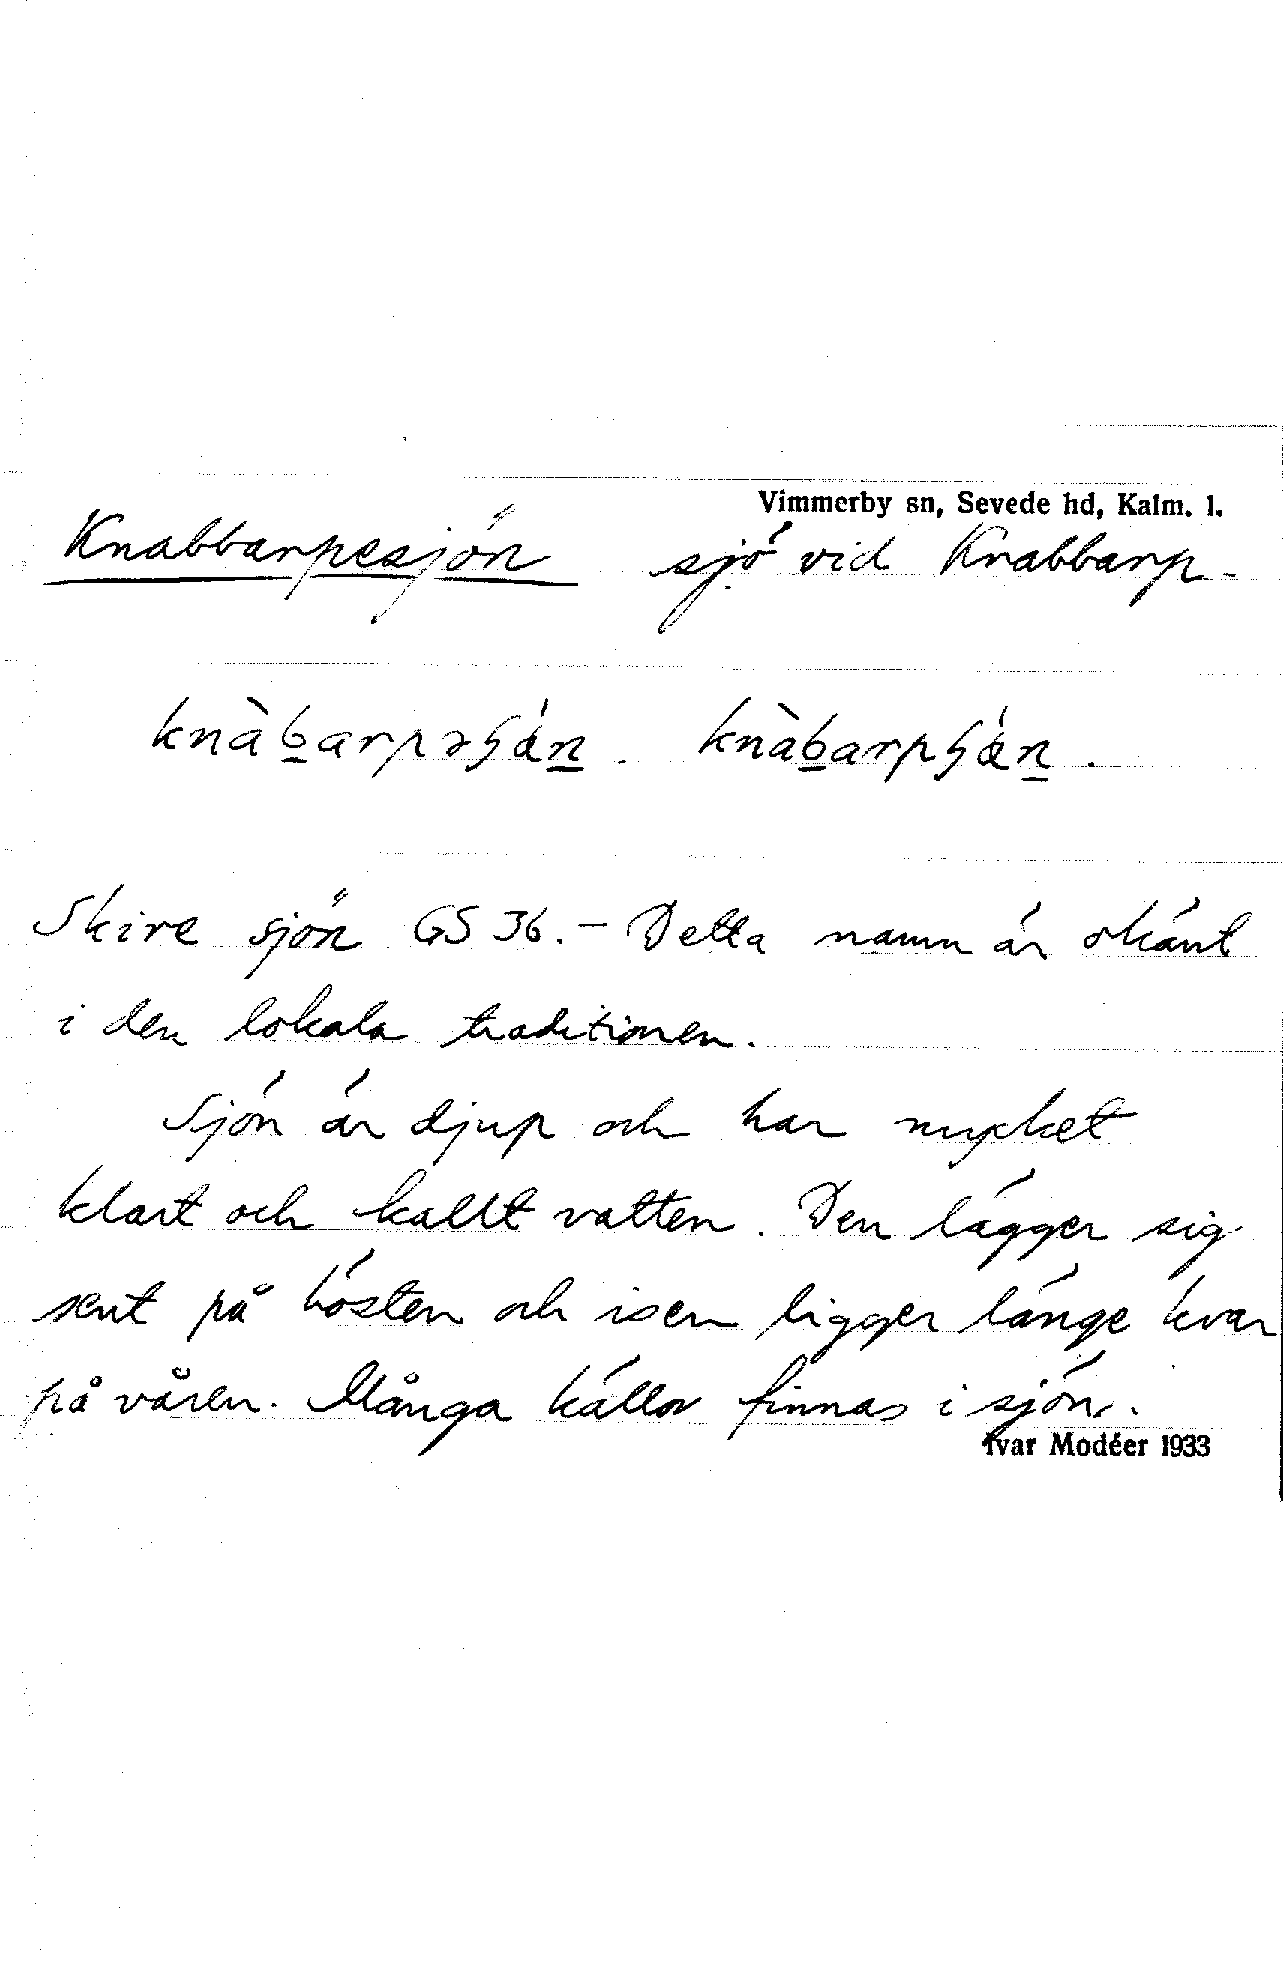 Vimmerby sn, Sevede hd, Kalm. l.
Knabbarpesjön sjö vid Knabbarp.
knàb̲arpəʂǿn̲. knàb̲arpʂǿn̲.
Skire sjön GS 36. – Detta namn är okänt
i den lokala traditionen.
Sjön är djup och har mycket
klart och kallt vatten. Den lägger sig
sent på hösten och isen ligger länge kvar
på våren. Många källor finnas i sjön.
Ivar Modéer 1933